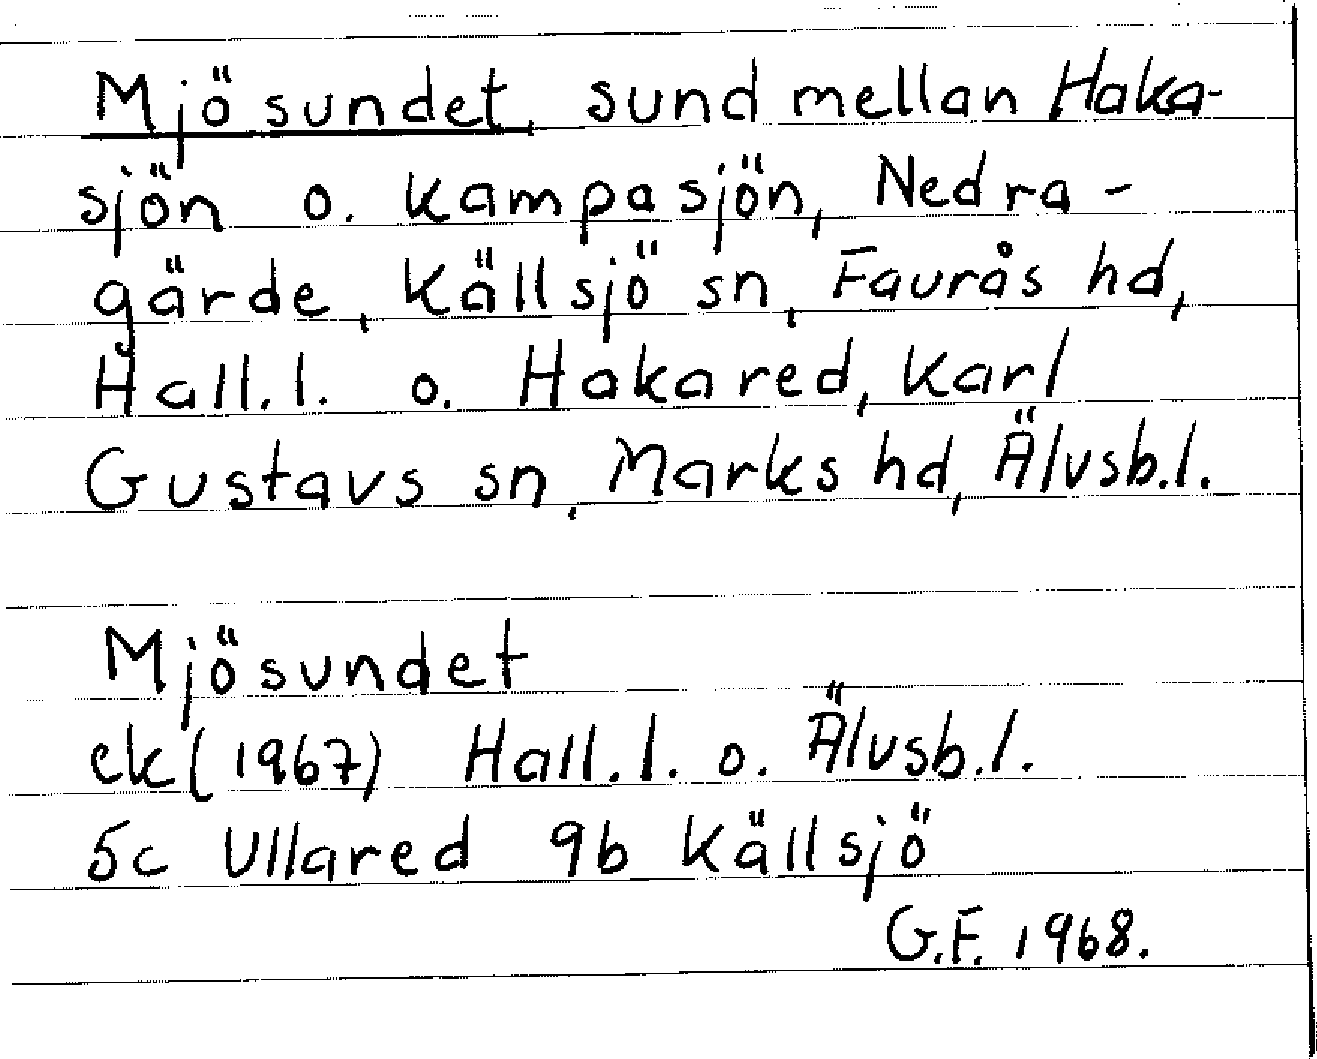 Mjösundet, sund mellan Haka-
sjön o. Kampasjön, Nedra-
gärde, Källsjö sn, Faurås hd,
Hall.l. o. Hakared, Karl
Gustavs sn, Marks hd, Älvsb.l.
Mjösundet
ek (1967) Hall.l. o. Älvsb.l.
5c Ullared 9b Källsjö
G.F. 1968.